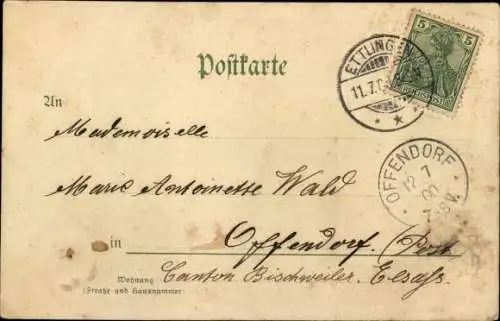 Postkarte
5 5
ETTLINGEN
11.7.0
An
Mademoiselle
OFFENDORF
12 7
00
7-8 V.
Marie Antoinette Wald
in Offendorf. (Post
Wohnung Canton Bischweiler, Elsass.
(Straße und Hausnummer)